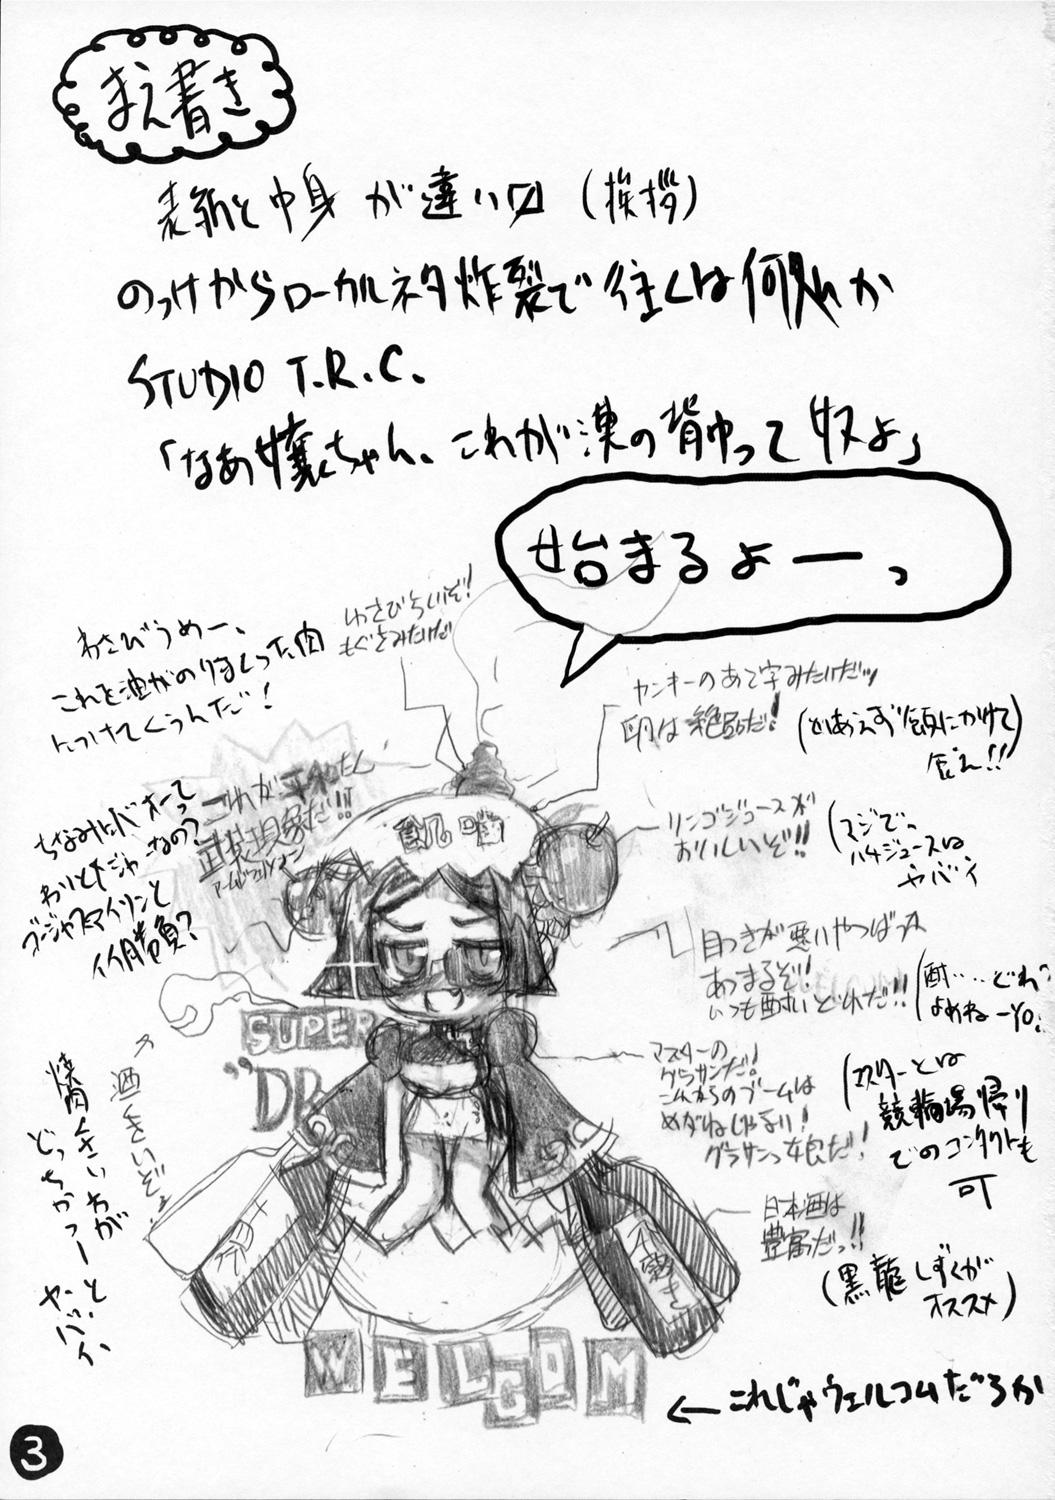 まえ書き
表紙と中身が違い〼(挨拶)
のっけからローカルネタ炸裂で往くは何処か
STUDIO T.R.C.
「なあ嬢ちゃん、これが漢の背中って奴よ」
始まるよーっ
わさびうめー、
これを油がのりまくった肉
につけてくうんだ!
わさびらいいぞ!
もぐさみたいだ
ヤンキーのあて字みたいだッ
卵は絶品だ!
(とりあえず飯にかけて
食え!!)
これが平和たん
武装現象だ!!
飢嘴
リンゴジュースが
おいしいぞ!!
(マジで。
ハチジュースは
ヤバイ)
ちなみにバオーって
わりとメジャーなの?
ゴージャスアイリンと
イイ勝負?
目つきが悪いやつばっか
あつまるぞ!
いつも酔いどれだ!!
(酎‥‥どれ?
よめねーYO!)
SUPER
"DR
マスターの
グラサンだ!
これからのブームは
めがねじゃない!
グラサンっ娘だ!
(マスターとは
競輪場帰り
でのコンタクトも
可)
酒くさいぞ!
焼肉くさいわが
どっちかっつーと
ヤバイ
日本酒は
豊富だっ!!
(黒龍しずくが
オススメ)
WELCOM
←これじゃウェルコムだろが
3